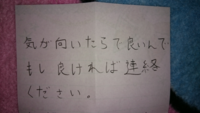 気が向いたらで良いんで
もし良ければ連絡
ください。